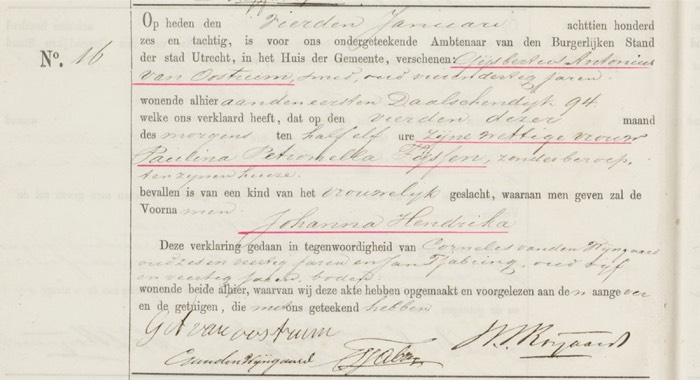 Nº. 16
Op heden den vierden Januari achttien honderd
zes en tachtig, is voor ons ondergeteekende Ambtenaar van den Burgerlijken Stand
der stad Utrecht, in het Huis der Gemeente, verschenen: Gijsbertus Antonius
van Oostrum, smed, oud veertig jaren.
wonende alhier aan den eersten Daalschendijk 94
welke ons verklaard heeft, dat op den vierden dezer maand
des morgens ten half elf ure zijne wettige vrouw
Paulina Petronella Fijssen, zonder beroep,
ten zijnen huize.
bevallen is van een kind van het vrouwelijk geslacht, waaraan men geven zal de
Voornamen
Johanna Hendrika
Deze verklaring gedaan in tegenwoordigheid van Cornelis van den Wijngaard
oud zes en veertig jaren en Jan Tjabring, oud vijf
en veertig jaren, boden.
wonende beide alhier, waarvan wij deze akte hebben opgemaakt en voorgelezen aan den aangever
en de getuigen, die met ons geteekend hebben
G A van oostrum
C van den Wijngaard